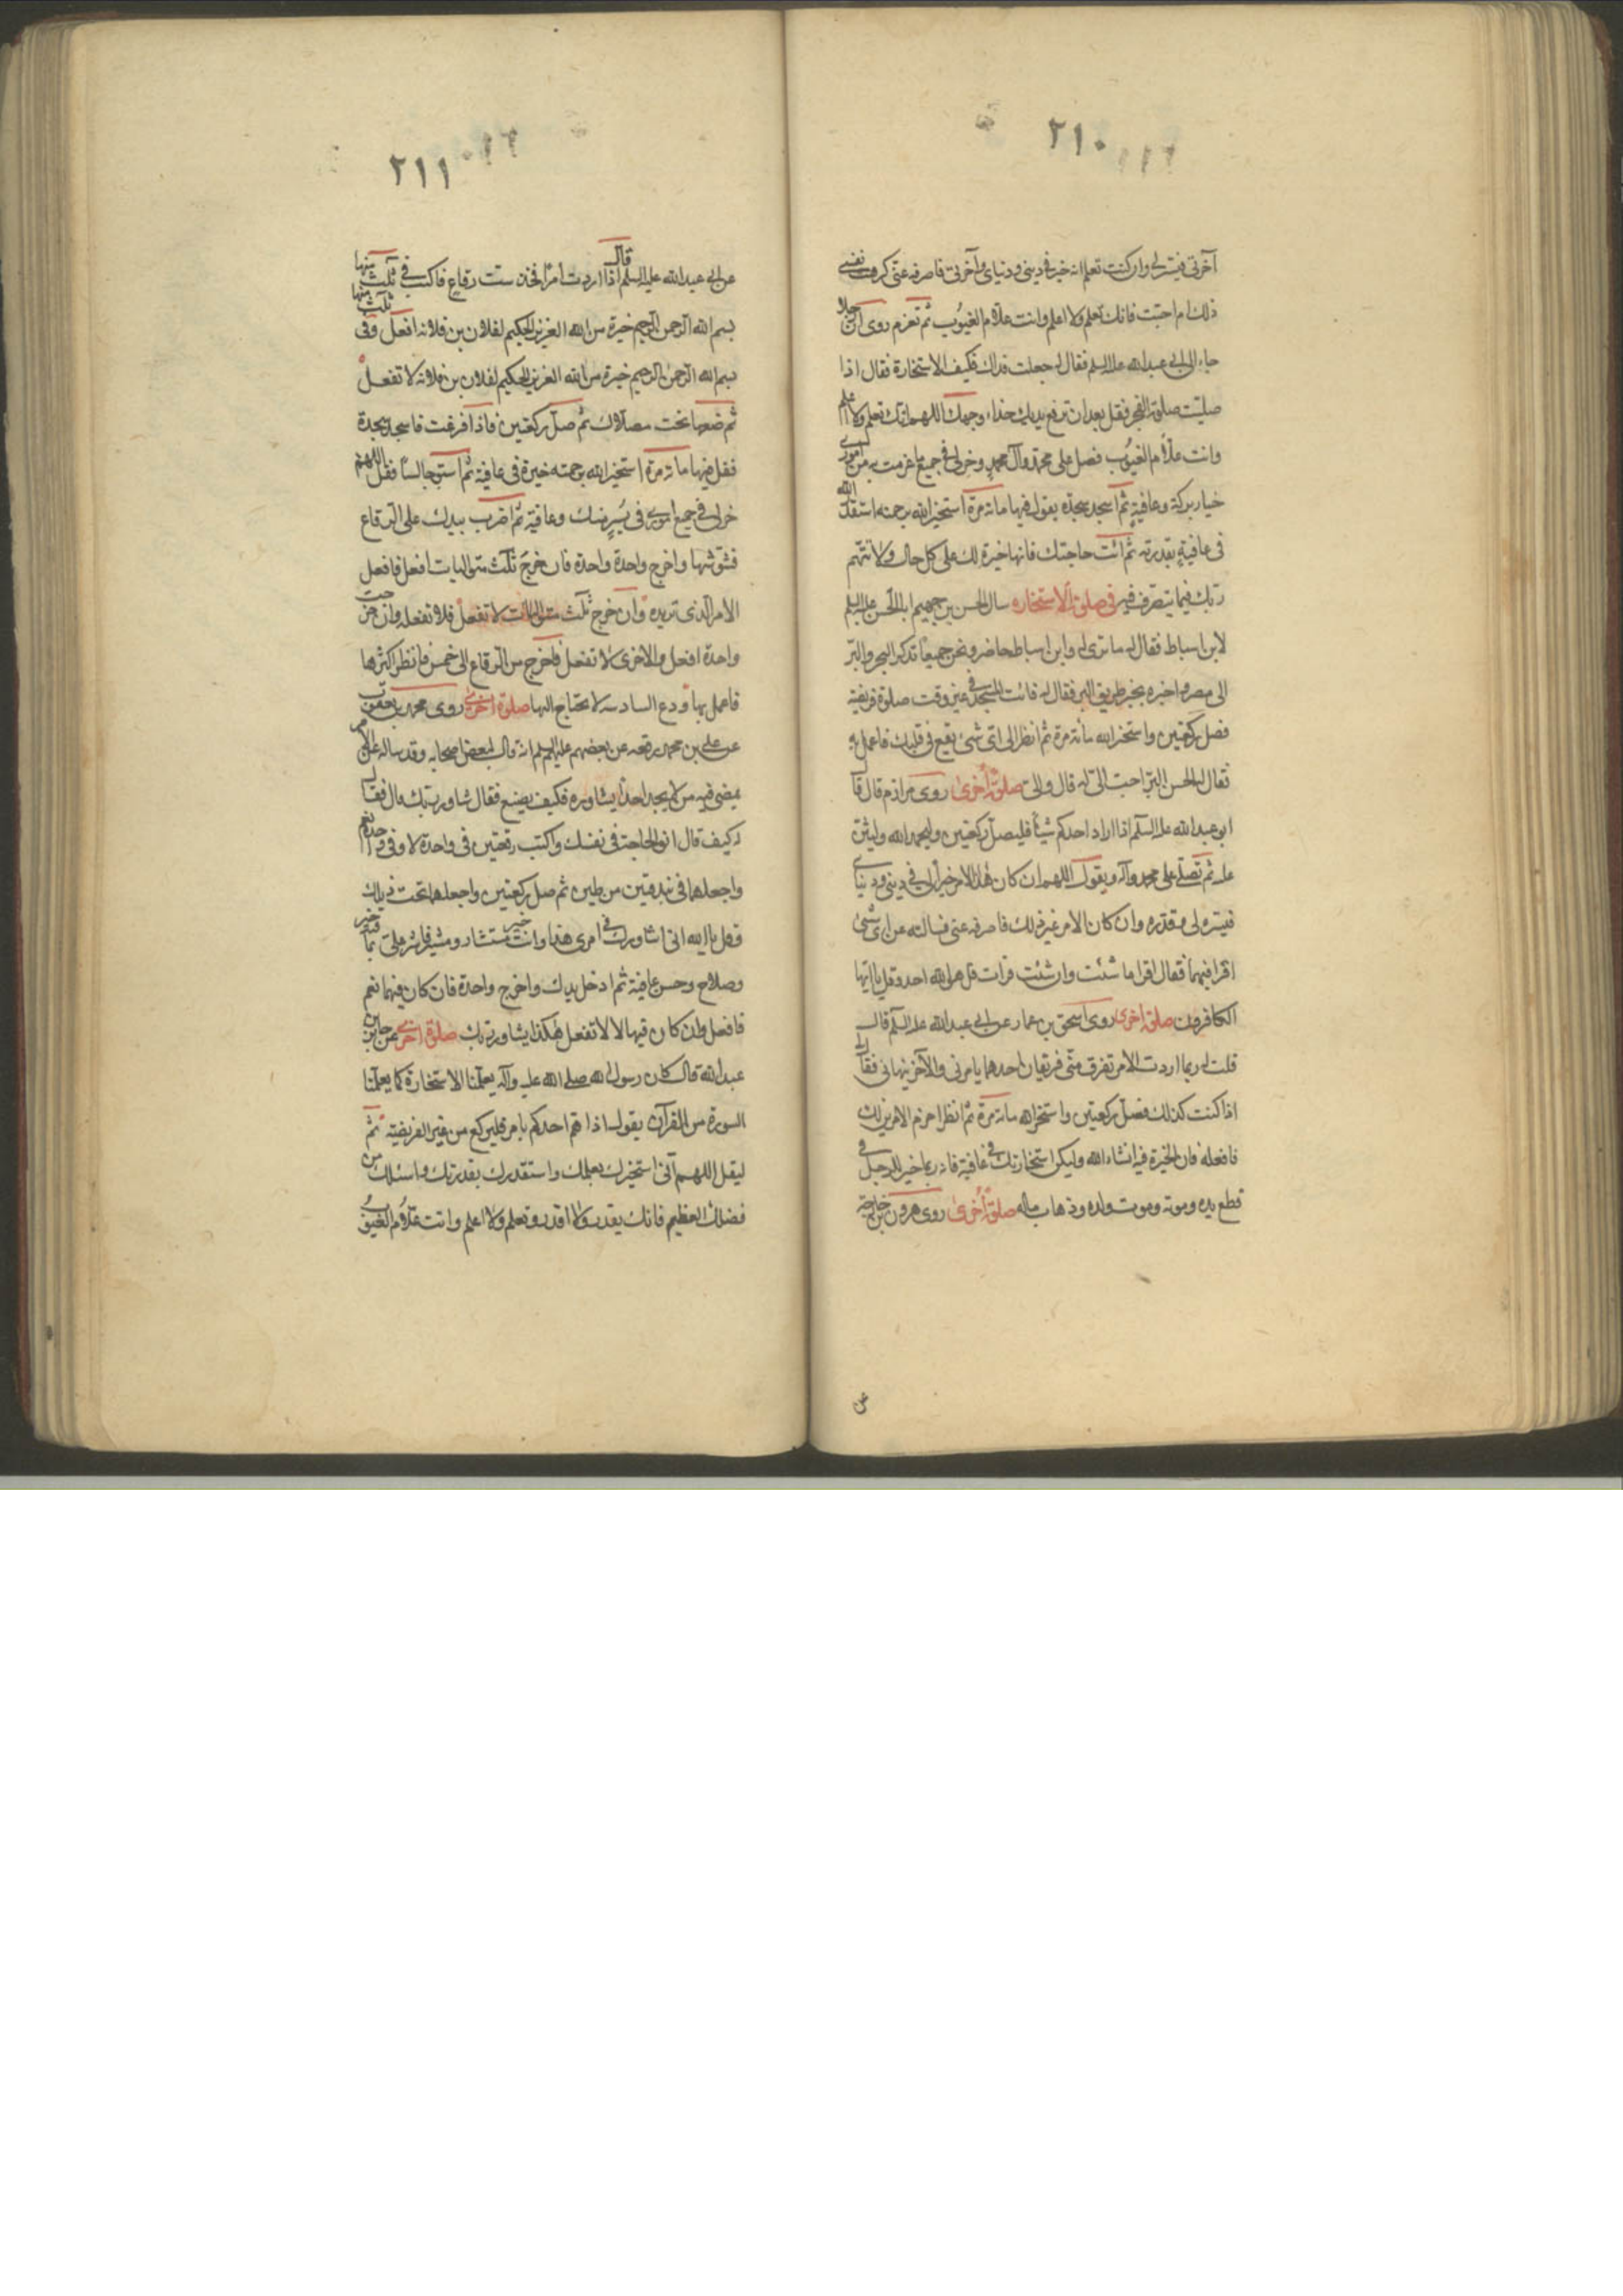 ٢١٠
آخرتي فيسره لي وان كنت تعلم انه خير في ديني ودنياي وآخرتي فاصرفه عني كرهت نفسي
ذلك ام احبت فانك تعلم ولا اعلم وانت علام الغيوب ثم تعزم روى ان رجلا
جاء الى ابي عبدالله عليه السلم فقال له جعلت فداك فكيف الاستخارة فقال اذا
صليت صلوة الفجر فقل بعد ان ترفع يديك حذاء وجهك اللهم انك تعلم ولا اعلم
وانت علام الغيوب فصل على محمد وآل محمد وخر لي في جميع ما عزمت به من اموري
خيار بركة وعافية ثم اسجد سجدة يقول فيها مائة مرة استخير الله برحمته استقدر الله
في عافية بقدرته ثم ائت حاجتك فانها خيرة لك على كل حال ولا تتهم
ربك فيما يتصرف فيه في صلوة الاستخاره سال الحسن بن جهيم ابا الحسن عليه السلم
لابن اسباط فقال له ما ترى له وابن اسباط حاضر ونحن جميعا تذكر البحر والبر
الى مصر واخبره بخبر طريق البر فقال له فائت المسجد في غير وقت صلوة فريضة
فصل ركعتين واستخر الله مائة مرة ثم انظر الى اي شئ يقع في قلبك فاعمل به
فقال له الحسن البر احب الي له قال والي صلوة أخرى روى مرازم قال قال
ابو عبدالله عليه السلم اذا اراد احدكم شيئا فليصل ركعتين وليحمد الله وليثن
عليه ثم تصلى على محمد وآله ويقول اللهم ان كان هذا الامر خيرا لي في ديني ودنياي
فيسره لي وقدره وان كان الامر غير ذلك فاصرفه عني فسالته عن اي شئ
اقرا فيهما فقال اقرا ما شئت وان شئت قرات قل هو الله احد وقل يا ايها
الكافرون صلوة اخرى روى اسحق بن عمار عن ابي عبدالله عليه السلم قال
قلت له ربما اردت الامر تفرق مني فريقان احدهما يامرني والآخر ينهاني فقال لي
اذا كنت كذلك فصل ركعتين واستخر الله مائة مرة ثم انظر احزم الامرين لك
فافعله فان الخيرة فيه انشاء الله وليكن استخارتك في عافية فانه ربما خير للرجل في
قطع يده وموته وموت ولده وذهاب ماله صلوة أخرى روى هرون بن خارجة
عن
٢١١
عن ابي عبدالله عليه السلم قال اذا اردت أمرا فخذ ست رقاع فاكتب في ثلث منها
بسم الله الرحمن الرحيم خيرة من الله العزيز الحكيم لفلان بن فلانه افعل وفي ثلث منها
بسم الله الرحمن الرحيم خيرة من الله العزيز الحكيم لفلان بن فلانة لا تفعل
ثم ضعها تحت مصلاك ثم صل ركعتين فاذا فرغت فاسجد سجدة
فقل فيها مائة مرة استخير الله برحمته خيرة في عافية ثم استو جالسا فقل اللهم
خر لي في جميع اموري في يسر منك وعافية ثم اضرب بيدك على الرقاع
فشوشها واخرج واحدة واحدة فان خرج ثلث متواليات افعل فافعل
الامر الذي تريده وان خرج ثلث متواليات لا تفعل فلا تفعله وان خرجت
واحدة افعل والاخرى لا تفعل فاخرج من الرقاع الى خمس فانظر اكثرها
فاعمل بها ودع السادسه لا تحتاج اليها صلوة اخرى روى محمد بن يعقوب
عن علي بن محمد رفعه عن بعضهم عليهم السلم انه قال لبعض اصحابه وقد ساله عن الامر
يمضي فيه من لا يجد احدا يشاوره فكيف يصنع فقال شاور ربك قال فقال
له كيف قال انو الحاجة في نفسك واكتب رقعتين في واحدة لا وفي واحدة نعم
واجعلهما في بندقتين من طين ثم صل ركعتين واجعلهما تحت ذيلك
وقل يا الله اني اشاورك في امري هذا وانت خير مستشار ومشير فاشر علي بما فيه خير
وصلاح وحسن عافية ثم ادخل يدك واخرج واحدة فان كان فيها نعم
فافعل وان كان فيها لا لا تفعل هكذا يشاور ربك صلوة اخرى عن جابر بن
عبدالله قال كان رسول الله صلى الله عليه وآله يعلمنا الاستخارة كما يعلمنا
السورة من القرآن يقول اذا هم احدكم بامر فليركع من غير الفريضة ثم
ليقل اللهم اني استخيرك بعلمك واستقدرك بقدرتك واسئلك من
فضلك العظيم فانك يقدر ولا اقدر وتعلم ولا اعلم وانت علام الغيوب